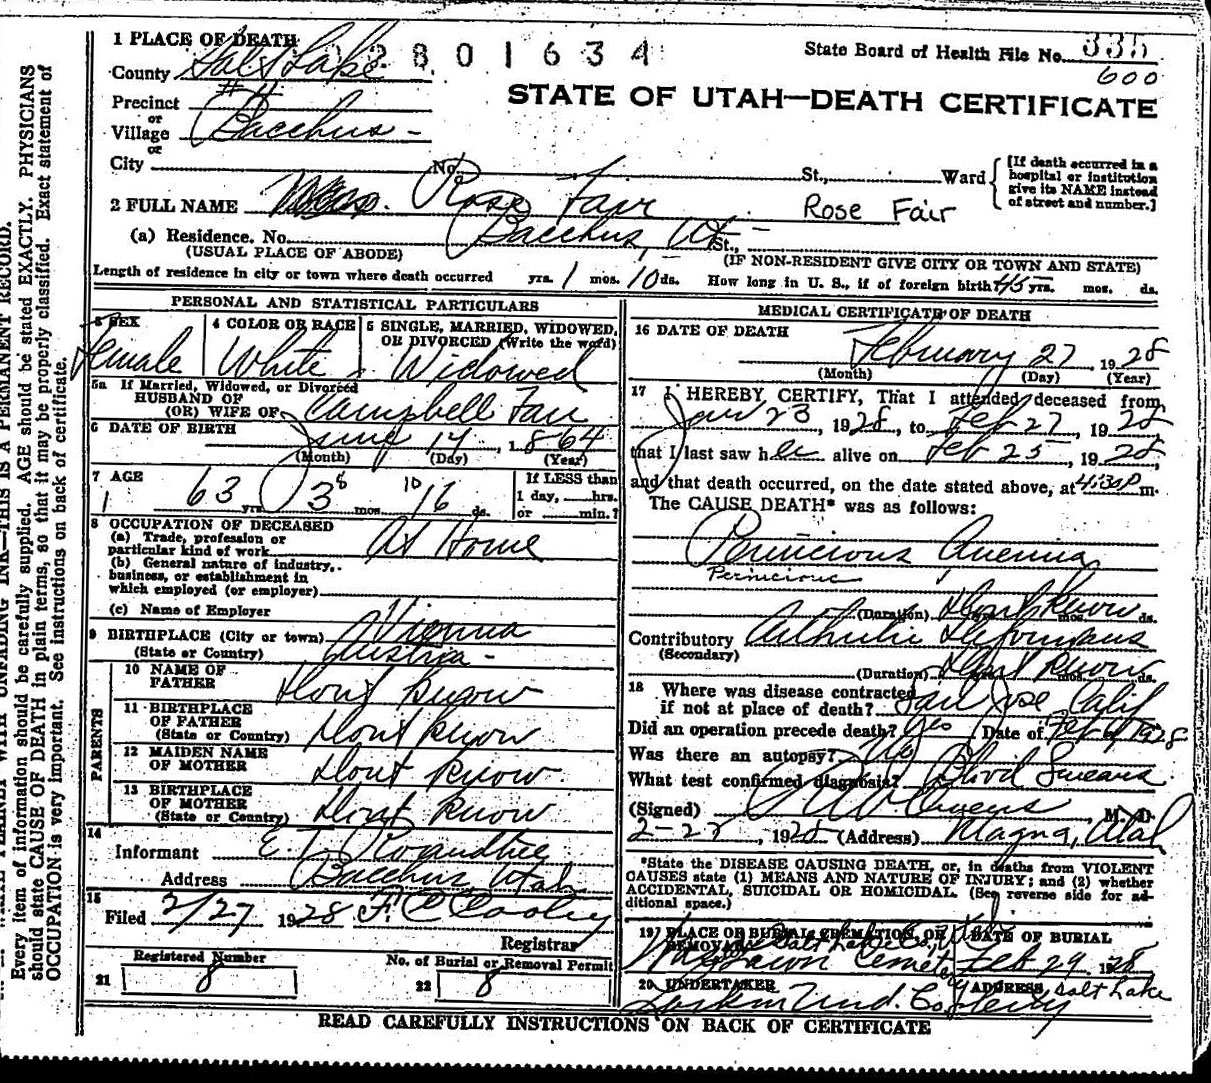 1 PLACE OF DEATH
2801634
State Board of Health File No. 335
County Salt Lake
600
STATE OF UTAH—DEATH CERTIFICATE
Precinct #4
or
Village Bacchus -
or
City No. St., Ward
[If death occurred in a hospital or institution give its NAME instead of street and number.]
2 FULL NAME Mrs. Rose Fair Rose Fair
(a) Residence. No. Bacchus, Ut - St.,
(USUAL PLACE OF ABODE) (IF NON-RESIDENT GIVE CITY OR TOWN AND STATE)
Length of residence in city or town where death occurred yrs. 1 mos. 10 ds. How long in U. S., if of foreign birth? 45 yrs. mos. ds.
PERSONAL AND STATISTICAL PARTICULARS
3 SEX Female
4 COLOR OR RACE White
5 SINGLE, MARRIED, WIDOWED, OR DIVORCED (Write the word) Widowed
5a If Married, Widowed, or Divorced
HUSBAND OF
(OR) WIFE OF Campbell Fair
6 DATE OF BIRTH June 14, 1864
(Month) (Day) (Year)
7 AGE 63 yrs. 3 8 mos. 10 16 ds.
If LESS than 1 day, hrs. or min.?
8 OCCUPATION OF DECEASED
(a) Trade, profession or particular kind of work At Home
(b) General nature of industry, business, or establishment in which employed (or employer)
(c) Name of Employer
9 BIRTHPLACE (City or town) Vienna
(State or Country) Austria -
PARENTS
10 NAME OF FATHER Dont Know
11 BIRTHPLACE OF FATHER (State or Country) Dont Know
12 MAIDEN NAME OF MOTHER Dont Know
13 BIRTHPLACE OF MOTHER (State or Country) Dont Know
14
Informant E. T.
Address Bacchus Utah
15
Filed 2/27 1928 F. C. Cooley
Registrar
Registered Number
21 8
No. of Burial or Removal Permit
22 8
MEDICAL CERTIFICATE OF DEATH
16 DATE OF DEATH
February 27 1928
(Month) (Day) (Year)
17 I HEREBY CERTIFY, That I attended deceased from
Jan 23, 1928, to Feb 27, 1928
that I last saw her alive on Feb 25, 1928,
and that death occurred, on the date stated above, at 4:30 P m.
The CAUSE DEATH* was as follows:
Pernicious Anemia
Pernicious
(Duration) Dont Know mos. ds.
Contributory Arthritis Deformans
(Secondary)
(Duration) Dont Know mos. ds.
18 Where was disease contracted
if not at place of death? San Jose Calif
Did an operation precede death? Yes Date of Feb 6/1928
Was there an autopsy? No
What test confirmed diagnosis? Blood Smears
(Signed) Owens M. D.
2-27, 1928 (Address) Magna, Utah
*State the DISEASE CAUSING DEATH, or, in deaths from VIOLENT
CAUSES state (1) MEANS AND NATURE OF INJURY; and (2) whether
ACCIDENTAL, SUICIDAL OR HOMICIDAL. (See reverse side for additional space.)
19 PLACE OF BURIAL, CREMATION, OR REMOVAL Salt Lake Co., Utah
Wasatch Lawn Cemetery
DATE OF BURIAL
Feb 29 1928
20 UNDERTAKER
Larkin Und. Co
ADDRESS Salt Lake
READ CAREFULLY INSTRUCTIONS ON BACK OF CERTIFICATE
THIS IS A PERMANENT RECORD.
Every item of information should be carefully supplied. AGE should be stated EXACTLY. PHYSICIANS
should state CAUSE OF DEATH in plain terms, so that it may be properly classified. Exact statement of
OCCUPATION is very important. See instructions on back of certificate.